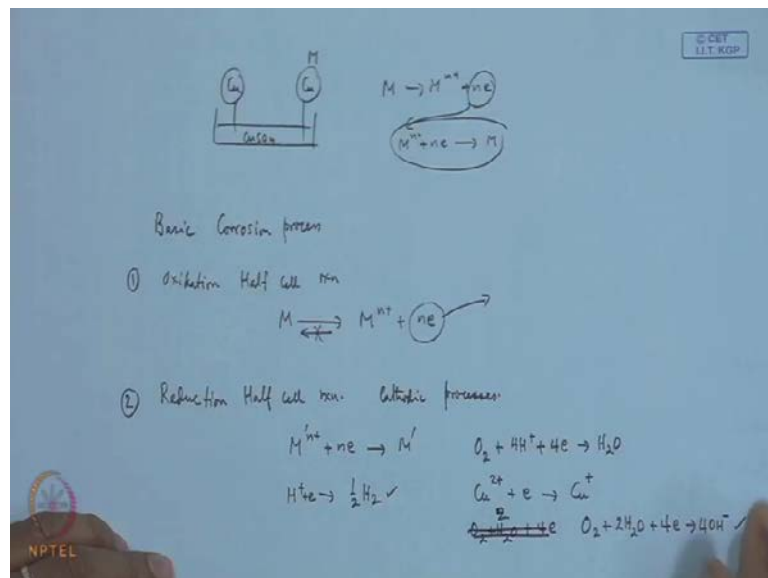 © CET
I.I.T. KGP
M
Cu Cu
CuSO4
M → Mⁿ⁺ + ne
Mⁿ⁺ + ne → M
Basic Corrosion process
① Oxidation Half cell rxn
M ⇄ Mⁿ⁺ + ne
② Reduction Half cell rxn. Cathodic processes.
M'ⁿ⁺ + ne → M' O₂ + 4H⁺ + 4e → H₂O
H⁺e → ½H₂ ✓ Cu²⁺ + e → Cu⁺
O₂ + 2H₂O + 4e → 4OH⁻ ✓
NPTEL